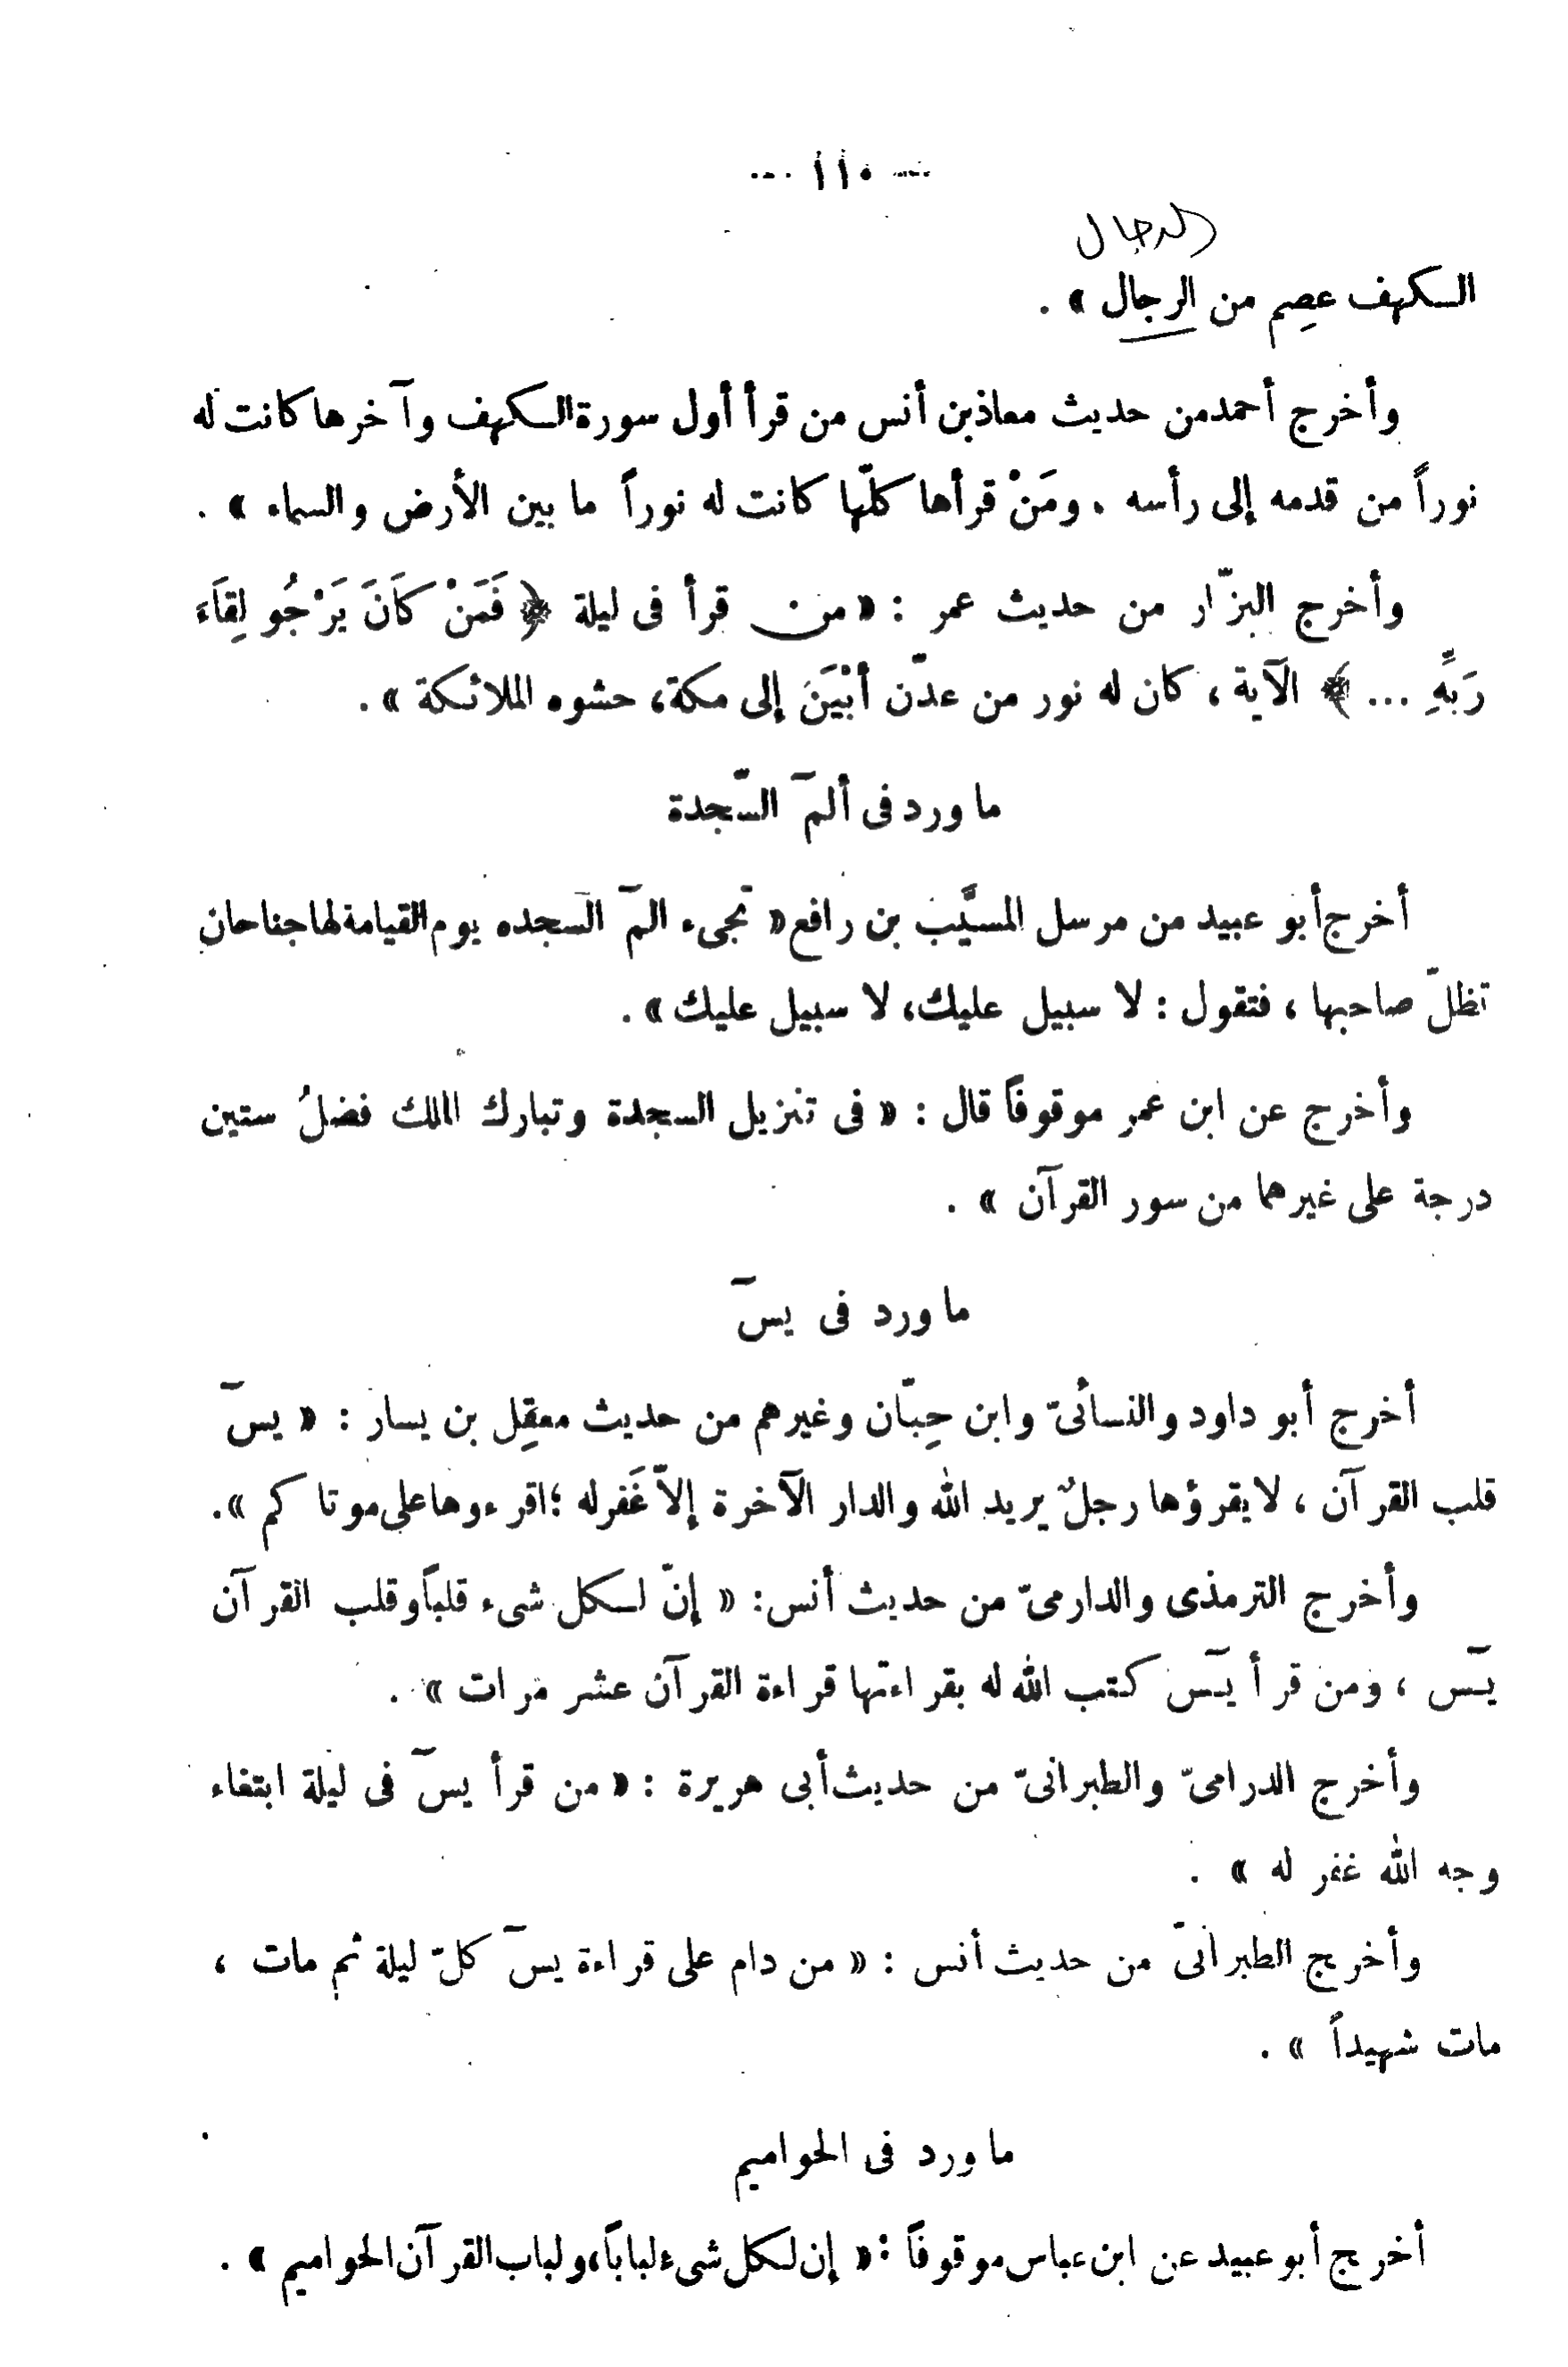 — ١١٠ —
الدجال
الكهف عصِم من الرجال » .
وأخرج أحمد من حديث معاذ بن أنس من قرأ أول سورة الكهف وآخرها كانت له
نوراً من قدمه إلى رأسه . ومَنْ قرأها كلّها كانت له نوراً ما بين الأرض والسماء » .
وأخرج البزّار من حديث عمر : « من قرأ فى ليلة ﴿ فَمَنْ كَانَ يَرْجُو لِقَاءَ
رَبِّهِ ... ﴾ الآية ، كان له نور من عدّن أبْيَنَ إلى مكة، حشوه الملائكة » .
ما ورد فى ألمۤ السّجدة
أخرج أبو عبيد من مرسل المسيَّب بن رافع « تجىء المۤ السجده يوم القيامة لها جناحان
تظلّ صاحبها ، فتقول : لا سبيل عليك، لا سبيل عليك » .
وأخرج عن ابن عمر موقوفاً قال : « فى تنزيل السجدة وتبارك الملك فضلُ ستين
درجة على غيرهما من سور القرآن » .
ما ورد فى يسۤ
أخرج أبو داود والنسائىّ وابن حِبّان وغيرهم من حديث معقِل بن يسار : « يسۤ
قلب القرآن ، لا يقرؤها رجلٌ يريد الله والدار الآخرة إلاّ غَفر له ؛ اقرءوها على موتاكم » .
وأخرج الترمذى والدارمىّ من حديث أنس: « إنّ لكل شىء قلباً وقلب القرآن
يۤس ، ومن قرأ يۤس كتب الله له بقراءتها قراءة القرآن عشر مرات » .
وأخرج الدرامىّ والطبرانىّ من حديث أبى هريرة : « من قرأ يسۤ فى ليلة ابتغاء
وجه الله غفر له » .
وأخرج الطبرانىّ من حديث أنس : « من دام على قراءة يسۤ كلّ ليلة ثم مات ،
مات شهيداً » .
ما ورد فى الحواميم
أخرج أبو عبيد عن ابن عباس موقوفاً : « إن لكل شىء لباباً، ولباب القرآن الحواميم » .